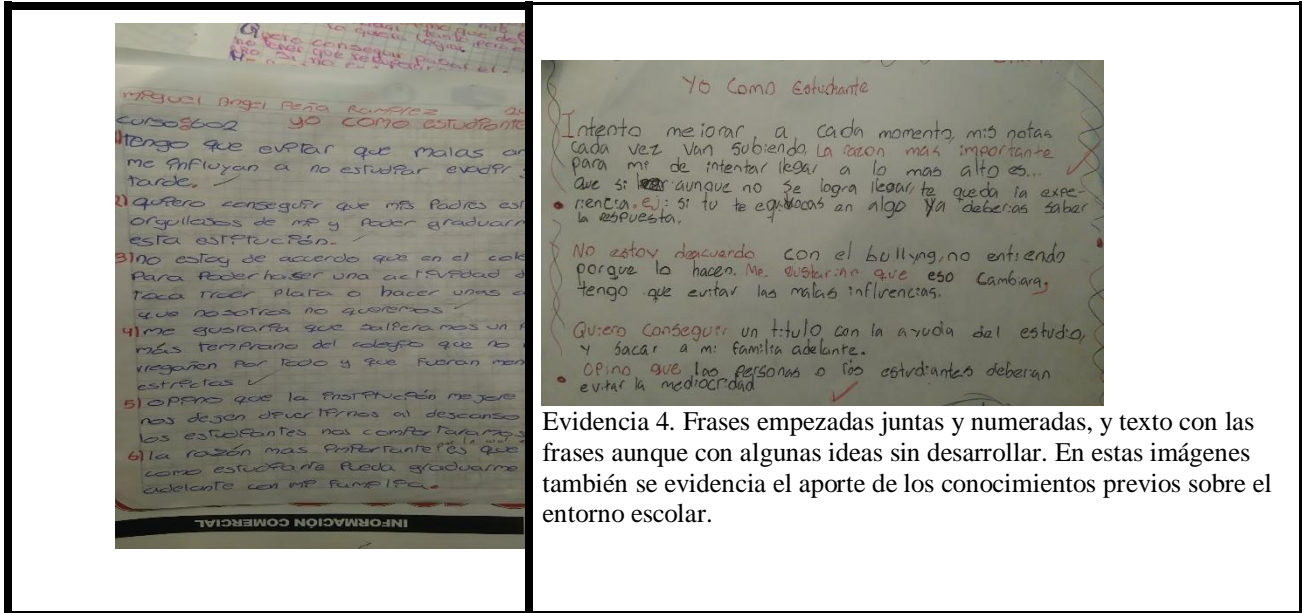 pero conseguir pasar el
no tener que recuperar
Miguel Angel Peña Ramirez
curso 602 yo como estudiante
1) tengo que evitar que malas
me influyan a no estudiar evadir
tarde.
2) quiero conseguir que mis Padres
orgullosos de mi y Poder
esta estitución.
3) no estoy de acuerdo que en el
Para Poder haser una actividad
toca traer Plata o hacer unas
que nosotros no queremos
4) me gustaria que salieramos un
más temprano del colegio que no
regañen Por todo y que fueran
estrictas
5) opino que la institución mejore
nos dejen divertirnos al descanso
los estudiantes nos comportaramos
6) la razón mas importante es que
como estudiante Pueda graduarme
adelante con mi familia.
INFORMACIÓN COMERCIAL
Yo Como Estudiante
Intento mejorar a cada momento, mis notas
cada vez van subiendo. La razon mas importante
para mi de intentar llegar a lo mas alto es...
Que si aunque no se logra llegar, te queda la expe-
riencia. ej: si tu te equivocas en algo ya deberias saber
la respuesta.
No estoy deacuerdo con el bullyng, no entiendo
porque lo hacen. Me gustarian que eso cambiara,
tengo que evitar las malas influencias.
Quiero conseguir un titulo con la ayuda del estudio,
y sacar a mi familia adelante.
Opino que las personas o los estudiantes deberian
evitar la mediocridad
Evidencia 4. Frases empezadas juntas y numeradas, y texto con las
frases aunque con algunas ideas sin desarrollar. En estas imágenes
también se evidencia el aporte de los conocimientos previos sobre el
entorno escolar.